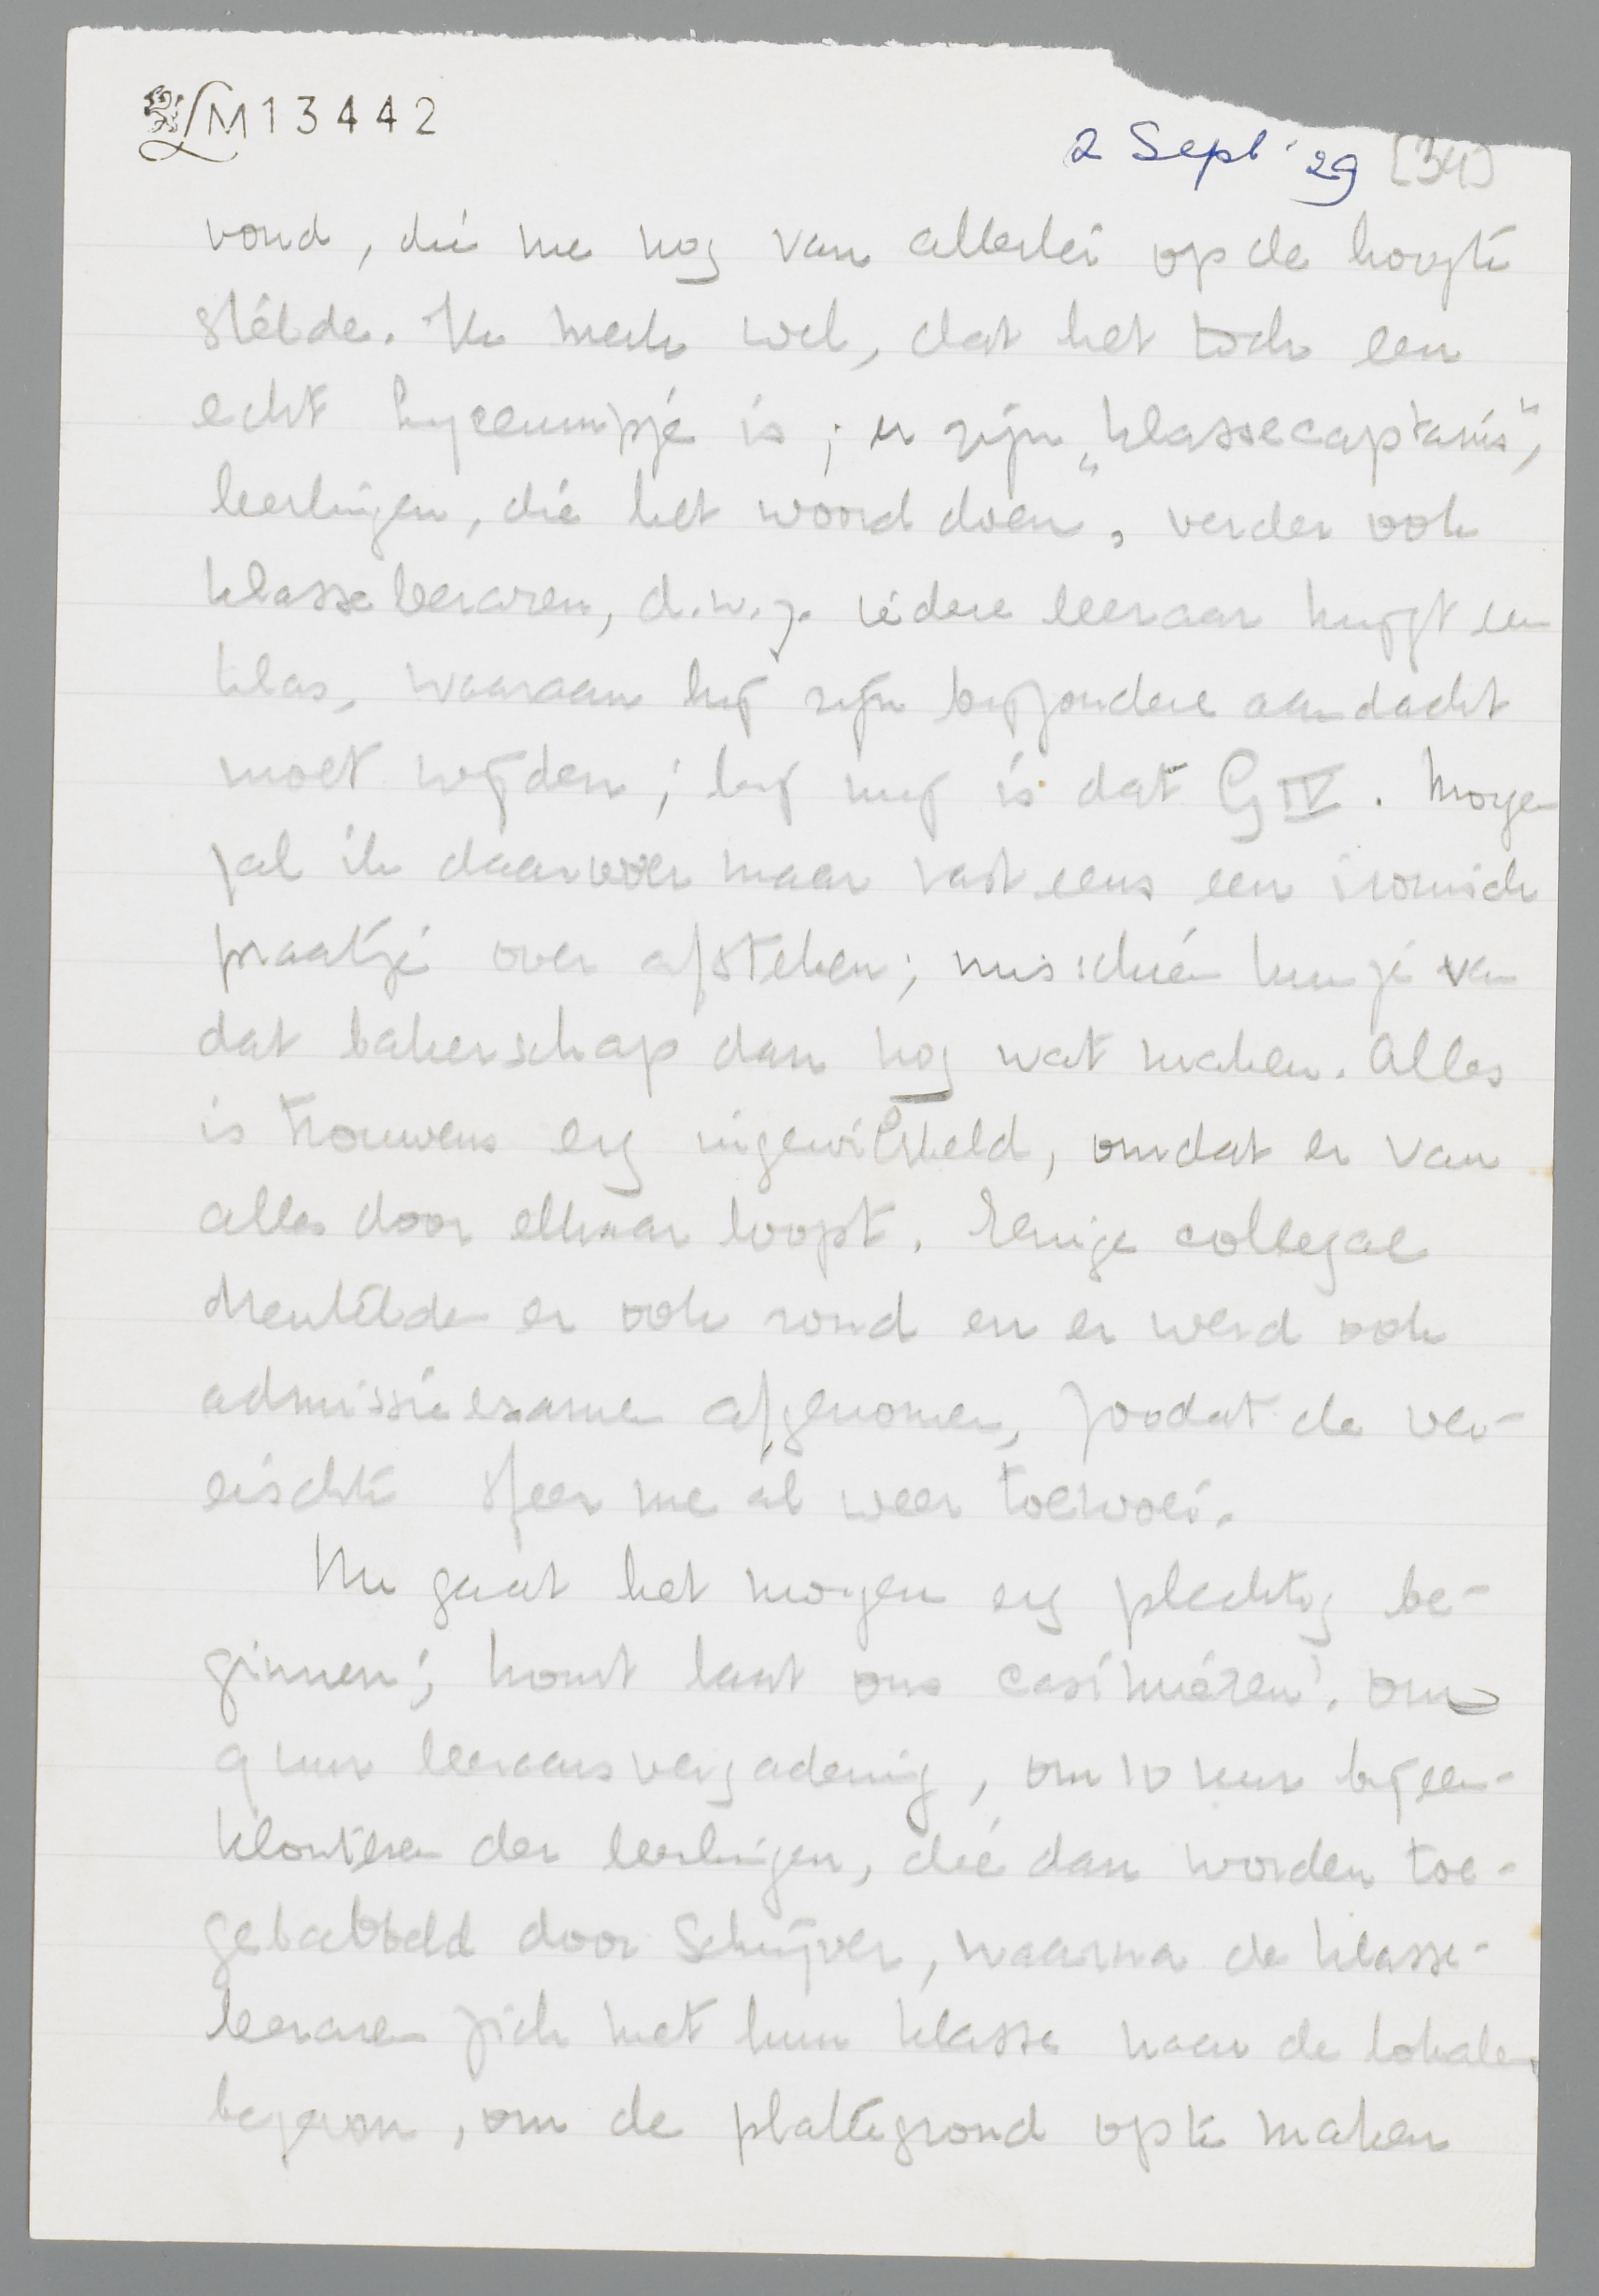 LM 13442
2 Sept '29 [34]
vond, die me nog van allerlei op de hoogte
stelde. Ik merk wel, dat het toch een
echt lyceumpje is; er zijn „klassecaptains",
leerlingen, die het woord doen, verder ook
klasseleeraren, d.w.z. iedere leeraar krijgt een
klas, waaraan hij zijn bijzondere aandacht
moet wijden; bij mij is dat G IV. Morgen
zal ik daarover maar vast eens een ironisch
praatje over afsteken; misschien kun je van
dat bakerschap dan nog wat maken. Alles
is trouwens erg ingewikkeld, omdat er van
alles door elkaar loopt. Eenige collegae
drentelden er ook rond en er werd ook
admissieexamen afgenomen, zoodat de ver-
eischte sfeer me al weer toewoei.
Nu gaat het morgen erg plechtig be-
ginnen; komt laat ons casimieren! Om
9 uur leeraarsvergadering, om 10 uur bijeen-
klonteren der leerlingen, die dan worden toe-
gebabbeld door Schrijver, waarna de klasse-
leeraren zich met hun klasse naar de lokalen
begeven, om de plattegrond op te maken